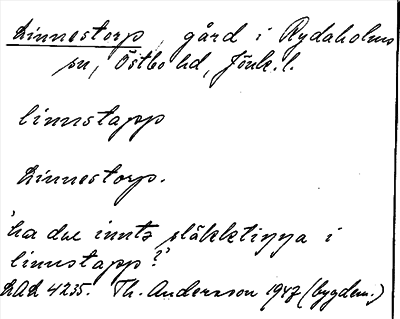 Linnestorp, gård i Rydaholms
sn, Östbo hd, Jönk. l.
linnstapp
Linnestorp.
'ha due inntə släkktiŋŋa i
linnstapp?'
LAL 4235. Th. Andersson 1947 (bygdem.)